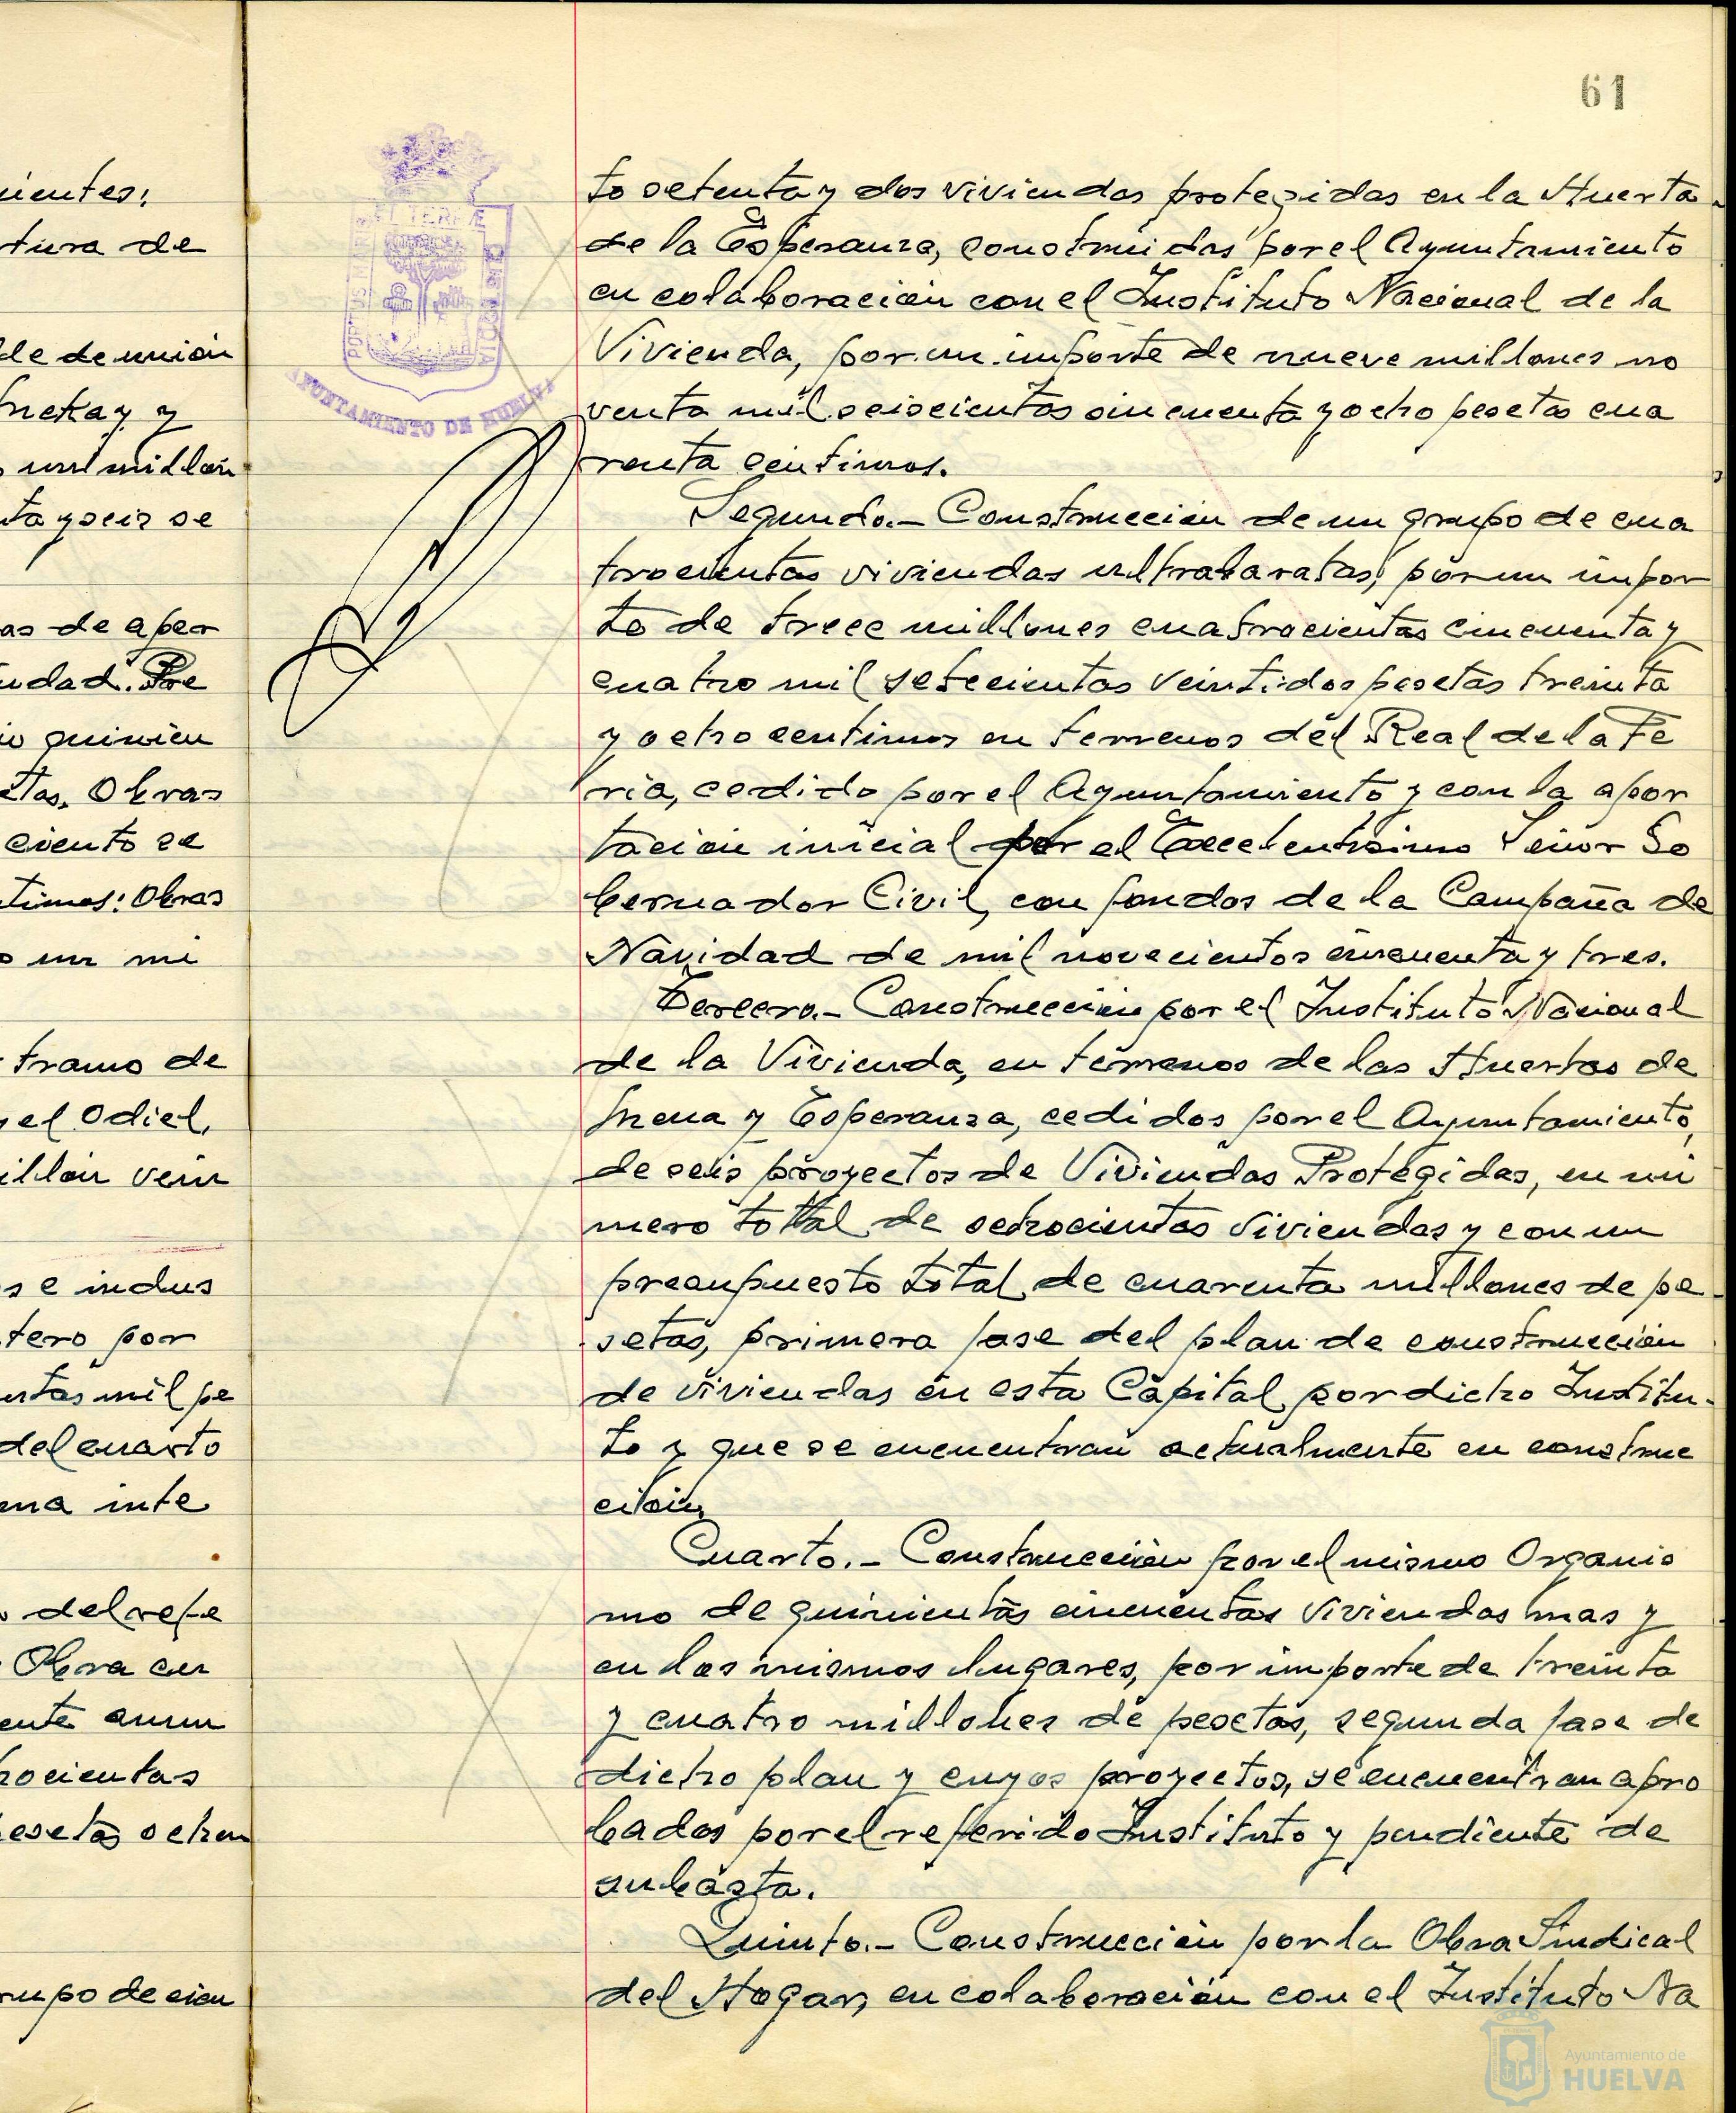 61
to setenta y dos viviendas protegidas en la Huerta
de la Esperanza, construidas por el Ayuntamiento
en colaboración con el Instituto Nacional de la
Vivienda, por un importe de nueve millones no
venta mil seiscientos cincuenta y ocho pesetas cua
renta centimos.
Segundo.- Construcción de un grupo de cua
trocientas viviendas ultrabaratas, por un impor
te de trece millones cuatrocientas cincuenta y
cuatro mil setecientas veintidos pesetas treinta
y ocho centimos en terrenos del Real de la Fe
ria, cedido por el Ayuntamiento y con la apor
tacion inicial por el Excelentisimo Señor Go
bernador Civil, con fondos de la Campaña de
Navidad de mil novecientos cincuenta y tres.
Tercero.- Construcción por el Instituto Nacional
de la Vivienda, en terrenos de las Huertas de
Mena y Esperanza, cedidos por el Ayuntamiento,
de seis proyectos de Viviendas Protegidas, en nú
mero total de ochocientas viviendas y con un
presupuesto total de cuarenta millones de pe
setas, primera fase del plan de construcción
de viviendas en esta Capital por dicho Institu-
to y que se encuentran actualmente en construc
ción.
Cuarto.- Construcción por el mismo Organis
mo de quinientas cincuentas viviendas mas y
en los mismos lugares, por importe de treinta
y cuatro millones de pesetas, segunda fase de
dicho plan y cuyos proyectos, se encuentran apro
bados por el referido Instituto y pendiente de
subasta.
Quinto.- Construcción por la Obra Sindical
del Hogar, en colaboración con el Instituto Na
uientes:
tura de
de de unión
y
un millon
ta y seis se
as de aper
udad. Pre
quinien
tas. Obras
ciento se
timos: Obras
un mi
tramo de
y el Odiel,
illon vein
s e indus
tero por
ntas mil pe
del cuarto
una inte
del refe
Obra en
ente
rocientas
esetas ochen
rupo de cien
PORTUS MARIS ET TERRÆ CUSTODIA
AYUNTAMIENTO DE HUELVA
Ayuntamiento de
HUELVA